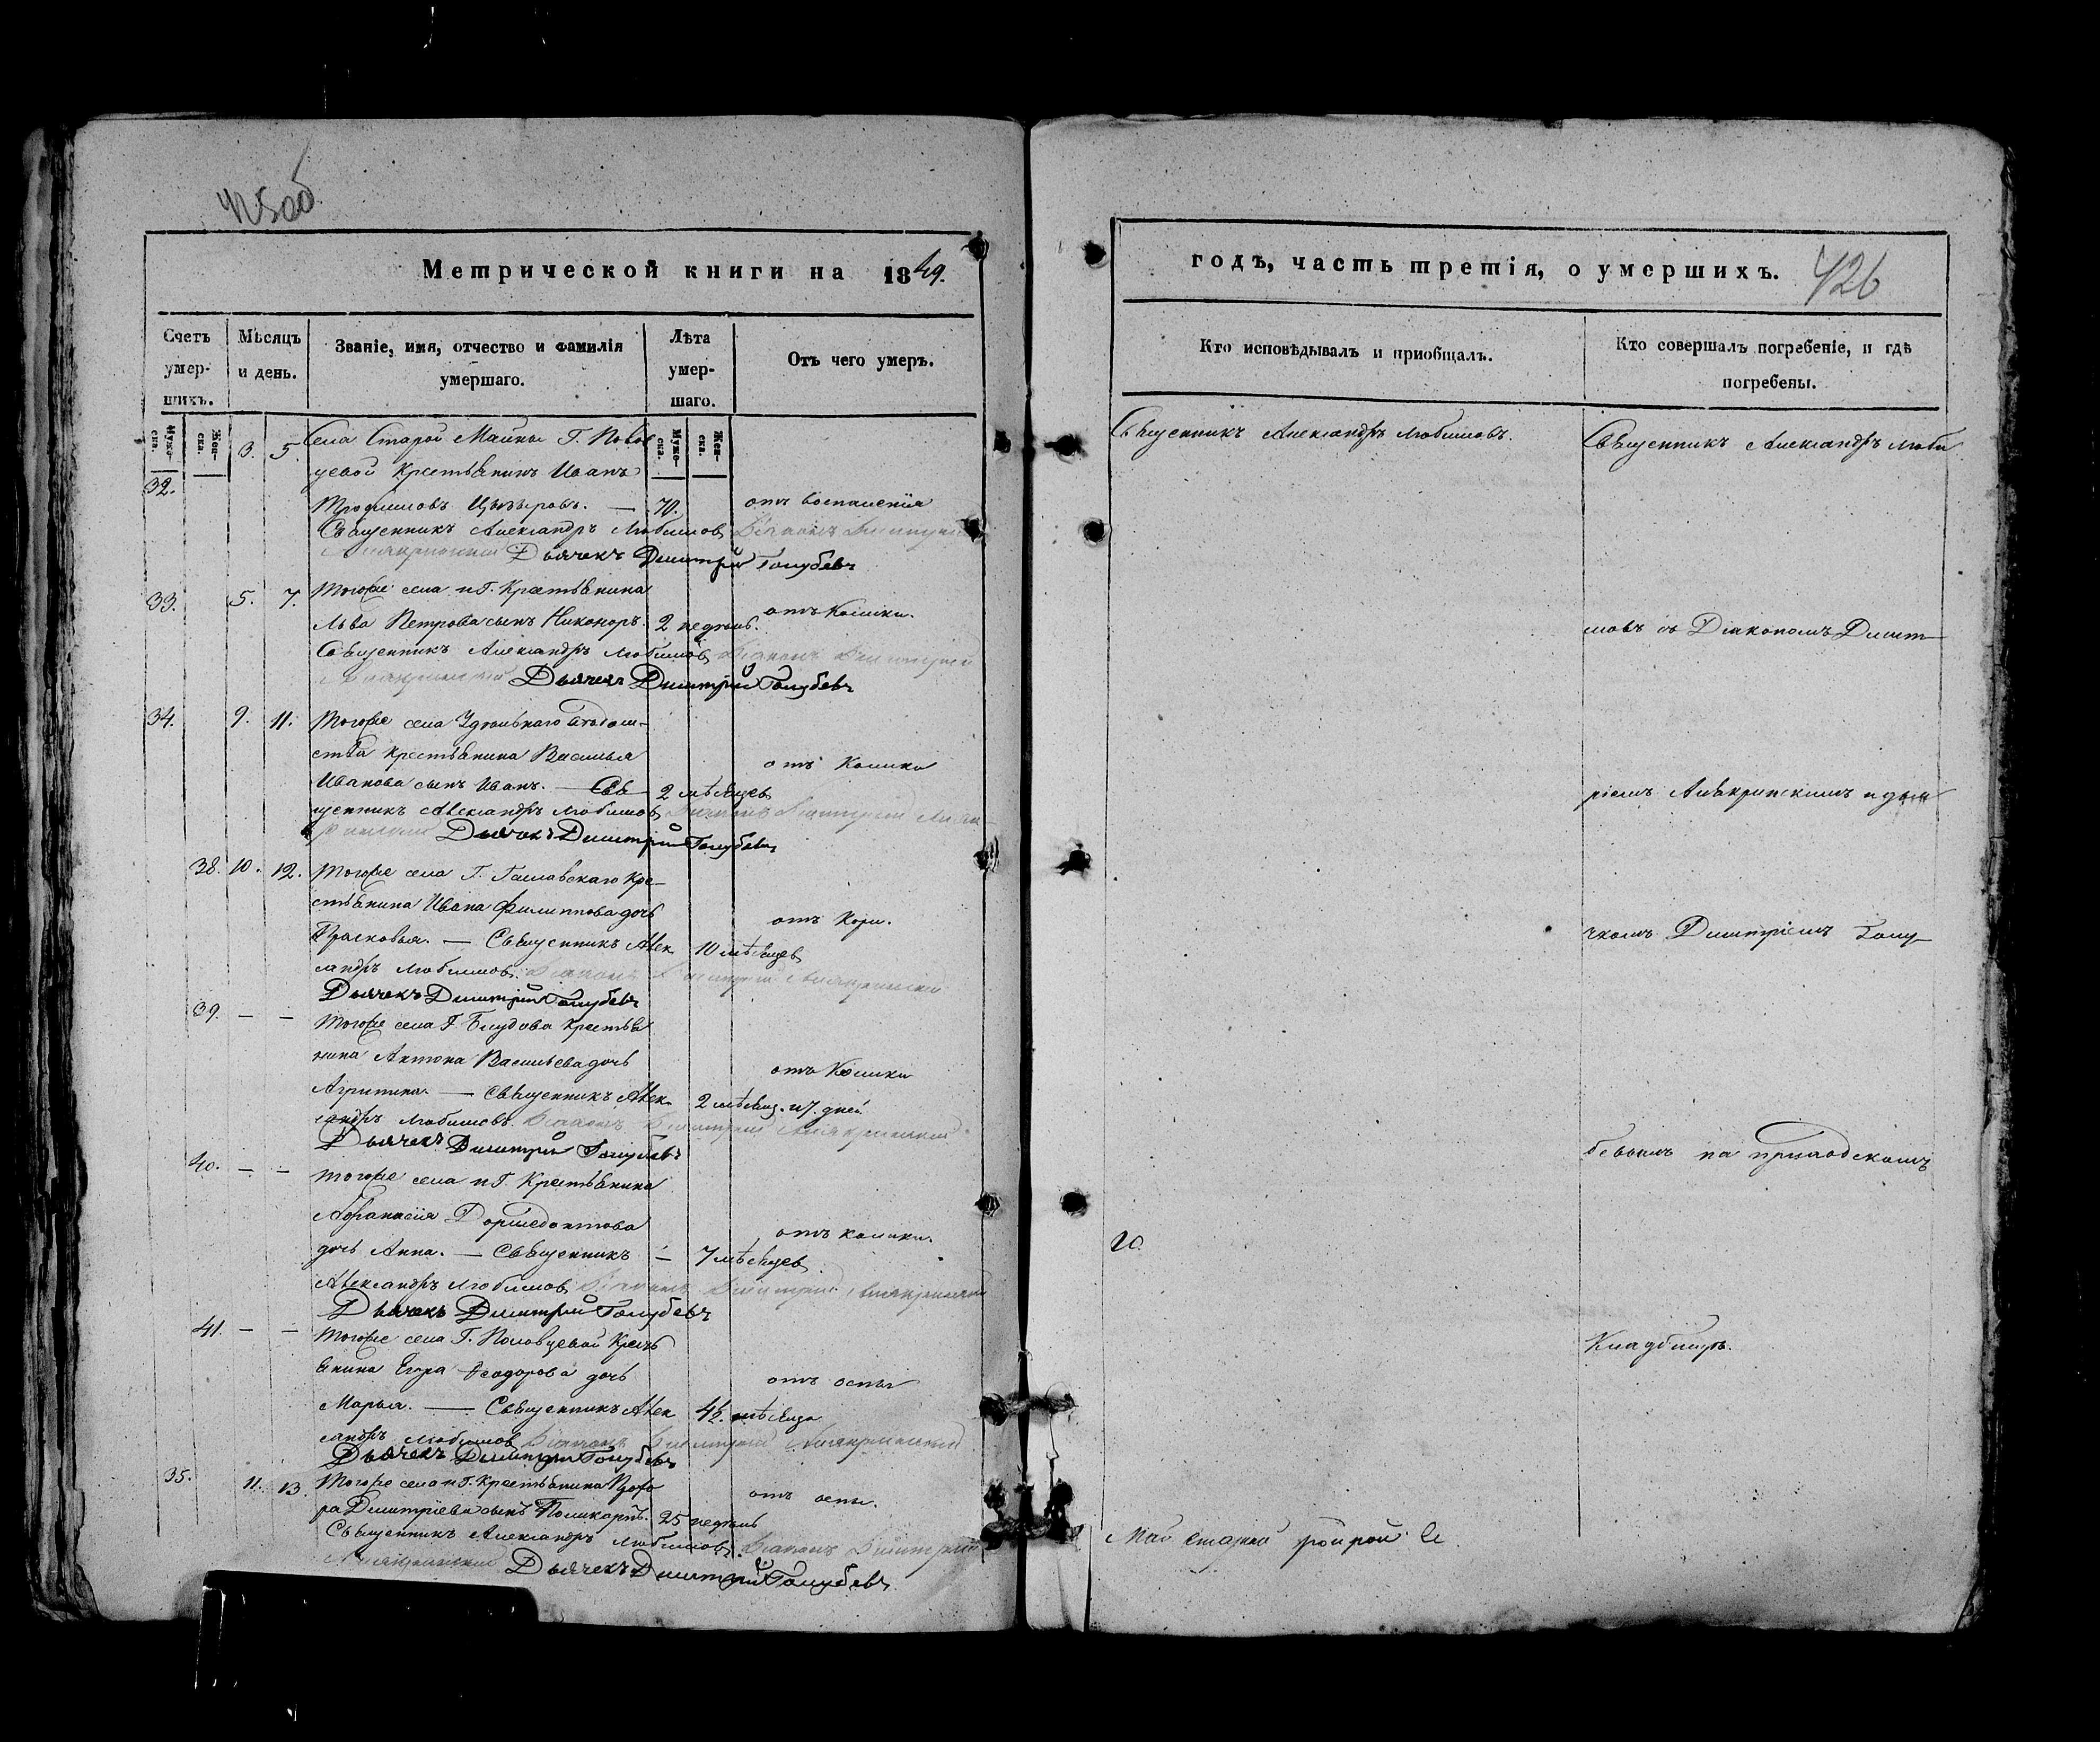 425об
Метрической книги на 1849.
Счетъ умер-шихъ.
Мѣсяцъ и день.
Званіе, имя, отчество и фамилія умершаго.
Лѣта умер-шаго.
Отъ чего умеръ.
Муже-ска.
Жен-ска.
3. 5. Села Старой Майны Г.
цевой Крестьянинъ Иванъ
32.
Трофимовъ — 70. отъ воспаленія
Священникъ Александръ Любимовъ Діаконъ Димитрій
Дьячекъ Димитрій Голубевъ
33. 5. 7. Тогоже села и Г. Крестьянина
Льва Петрова сынъ Никоноръ. 2 недѣль. отъ Колики.
Священникъ Александръ Любимовъ Діаконъ Димитрій
Дьячекъ Димитрій Голубевъ
34. 9. 11. Тогоже села Удѣльнаго Вѣдом-
ства Крестьянина Василья
отъ Колики
Иванова сынъ Иванъ. — Свя 2 мѣсяцевъ
щенникъ Александръ Любимовъ Діаконъ Димитрій
Дьячекъ Димитрій Голубевъ
38. 10. 12. Тогоже села Г. Кре-
стьянина Ивана Филиппова дочь
отъ Кори.
Прасковья. — Священникъ Алек 10 мѣсяцевъ
сандръ Любимовъ. Діаконъ Димитрій
Дьячекъ Димитрій Голубевъ
39. — — Тогоже села Г. Блудова Крестья
нина Антона Васильева дочь
отъ Колики
Агрипина. — Священникъ Алек 2 мѣсяц. и 7. дней
сандръ Любимовъ. Діаконъ Димитрій
Дьячекъ Димитрій Голубевъ
40. — — Тогоже села и Г. Крестьянина
Афанасія
отъ колики.
дочь Анна. — Священникъ — 7 мѣсяцевъ
Александръ Любимовъ Діаконъ Димитрій
Дьячекъ Димитрій Голубевъ
41. — — Тогоже села Г. Половцевой Кресть
янина Егора Ѳеодорова дочь
отъ оспы
Марья. — Священникъ Алек 4½ мѣсяца
сандръ Любимовъ Діаконъ Димитрій
Дьячекъ Димитрій Голубевъ
35. 11. 13. Тогоже села и Г. Крестьянина
отъ оспы.
ра Димитріева сынъ Поликарпъ. 25 недѣль
Священникъ Александръ Любимовъ. Діаконъ Димитрій
Дьячекъ Димитрій Голубевъ
годъ, часть третія, о умершихъ. 426
Кто исповѣдывалъ и пріобщалъ.
Кто совершалъ погребеніе, и гдѣ погребены.
Священникъ Александръ Любимовъ.
Священникъ Александръ Люби
мовъ съ Діакономъ Димит-
ріемъ и дья
чкомъ Димитріемъ Голу-
бевымъ на приходскомъ
Кладбищѣ.